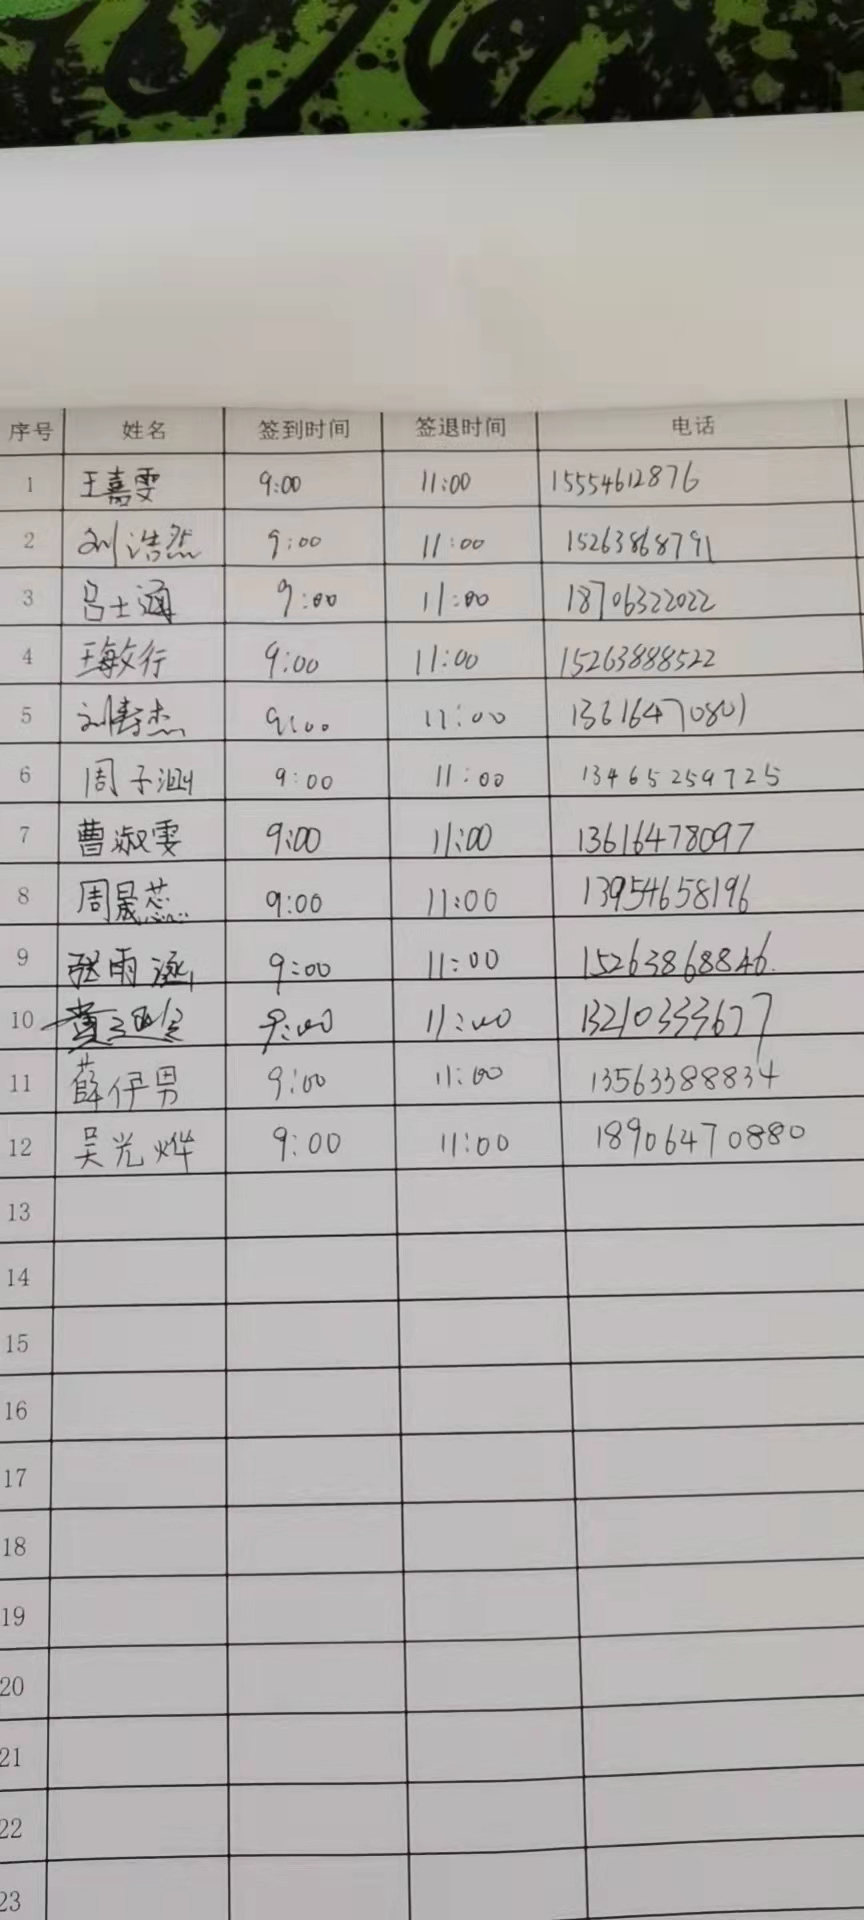 序号 姓名 签到时间 签退时间 电话
1 王嘉雯 9:00 11:00 15554612876
2 刘浩然 9:00 11:00 15263868791
3 吕士涵 9:00 11:00 18706322022
4 王敏行 9:00 11:00 15263888522
5 刘涛杰 9:00 11:00 13616470801
6 周子涵 9:00 11:00 13465259725
7 曹淑雯 9:00 11:00 13616478097
8 周晟蕊 9:00 11:00 13954658196
9 张雨涵 9:00 11:00 15263868846.
10 9:00 11:00 13210333677
11 薛伊男 9:00 11:00 13563388834
12 吴光烨 9:00 11:00 18906470880
13
14
15
16
17
18
19
20
21
22
23